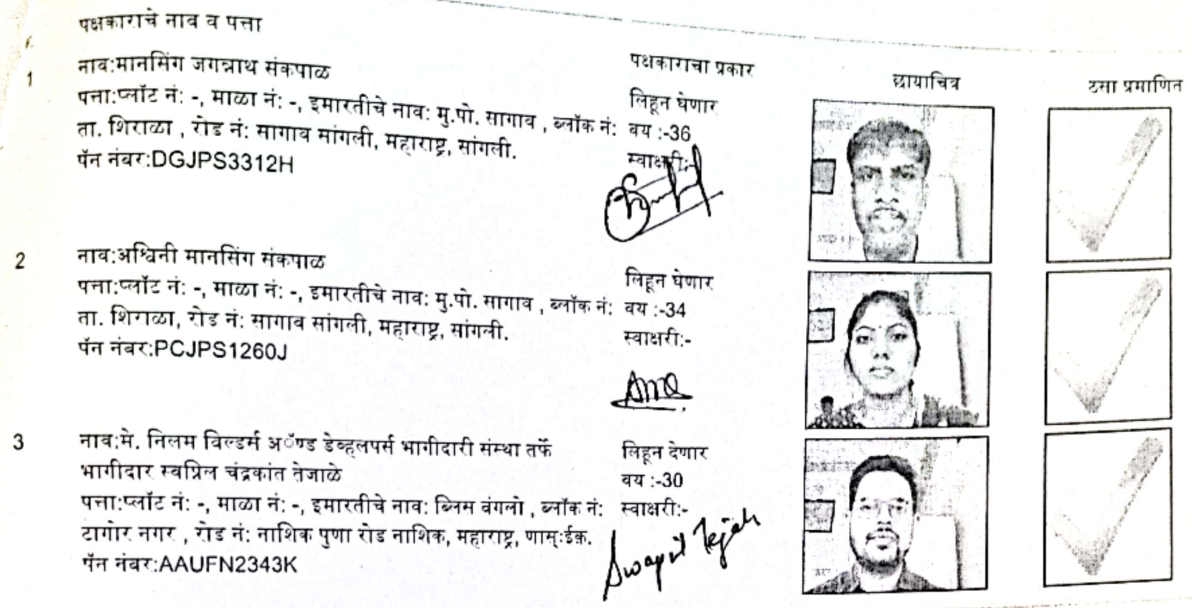 पक्षकाराचे नाव व पत्ता
पक्षकाराचा प्रकार
छायाचित्र
ठसा प्रमाणित
1
नाव:मानसिंग जगन्नाथ संकपाळ
पत्ता:प्लॉट नं: -, माळा नं: -, इमारतीचे नाव: मु.पो. सागाव , ब्लॉक नं:
ता. शिराळा , रोड नं: सागाव सांगली, महाराष्ट्र, सांगली.
पॅन नंबर:DGJPS3312H
लिहून घेणार
वय :-36
स्वाक्षरी:-
2
नाव:अश्विनी मानसिंग संकपाळ
पत्ता:प्लॉट नं: -, माळा नं: -, इमारतीचे नाव: मु.पो. सागाव , ब्लॉक नं:
ता. शिराळा, रोड नं: सागाव सांगली, महाराष्ट्र, सांगली.
पॅन नंबर:PCJPS1260J
लिहून घेणार
वय :-34
स्वाक्षरी:-
3
नाव:मे. निलम बिल्डर्स अॅण्ड डेव्हलपर्स भागीदारी संस्था तर्फे
भागीदार स्वप्निल चंद्रकांत तेजाळे
पत्ता:प्लॉट नं: -, माळा नं: -, इमारतीचे नाव: ब्लिम बंगलो , ब्लॉक नं:
टागोर नगर , रोड नं: नाशिक पुणा रोड नाशिक, महाराष्ट्र, णास्:ईक.
पॅन नंबर:AAUFN2343K
लिहून देणार
वय :-30
स्वाक्षरी:-
Swapnil Tejale